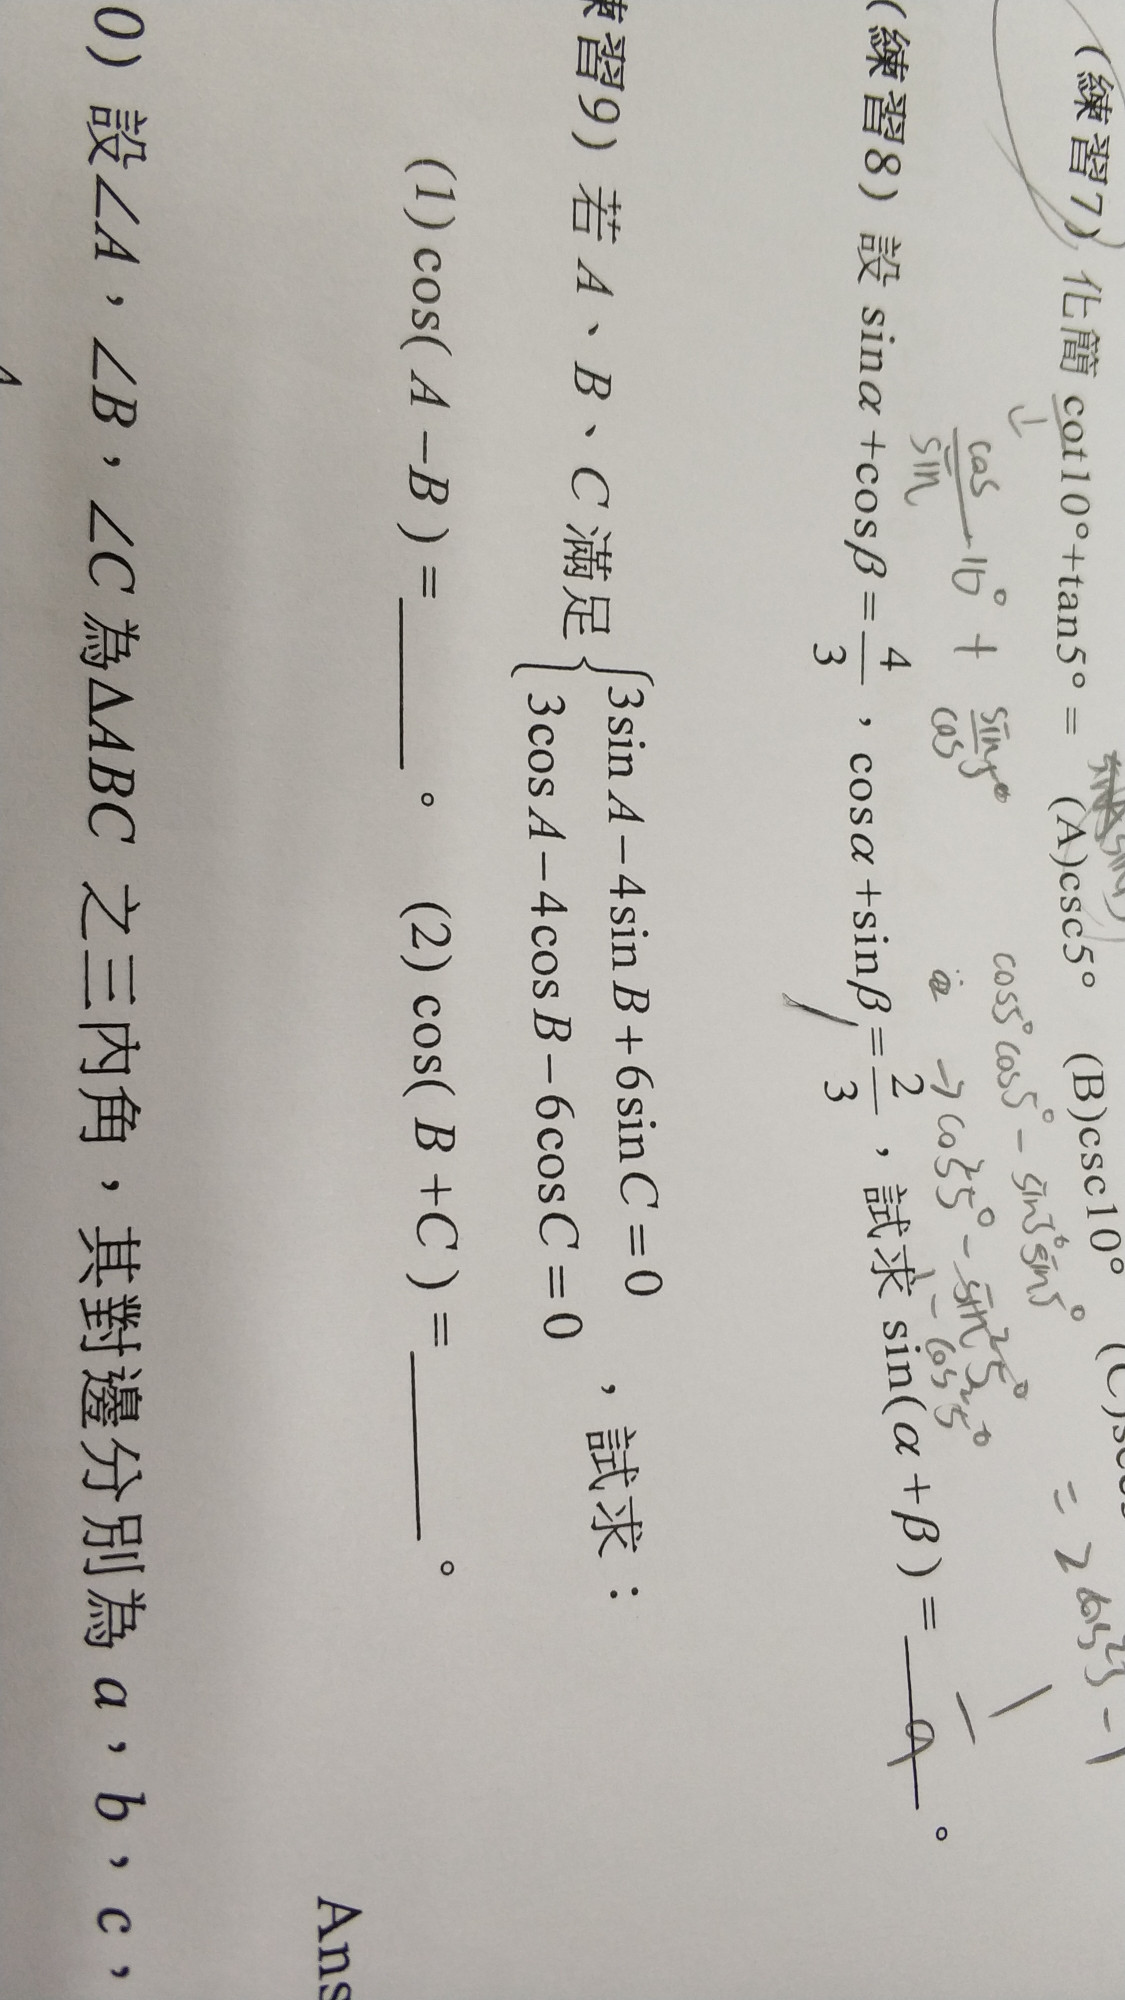 (練習7) 化簡 cot10°+tan5°= (A)csc5° (B)csc10°
cos/sin 10° + sin5°/cos
cos5° cos5° - sin5° sin5° = 2cos²5 - 1
→ cos²5° - sin²5°
1 - cos²5°
(練習8) 設 sinα+cosβ=4/3，cosα+sinβ=2/3，試求 sin(α+β)=____。
習9) 若 A、B、C 滿足 {3sin A−4sin B+6sin C=0
3cos A−4cos B−6cos C=0，試求：
(1) cos( A−B )=____。 (2) cos( B+C )=____。
Ans
0) 設∠A，∠B，∠C 為ΔABC 之三內角，其對邊分別為 a，b，c，